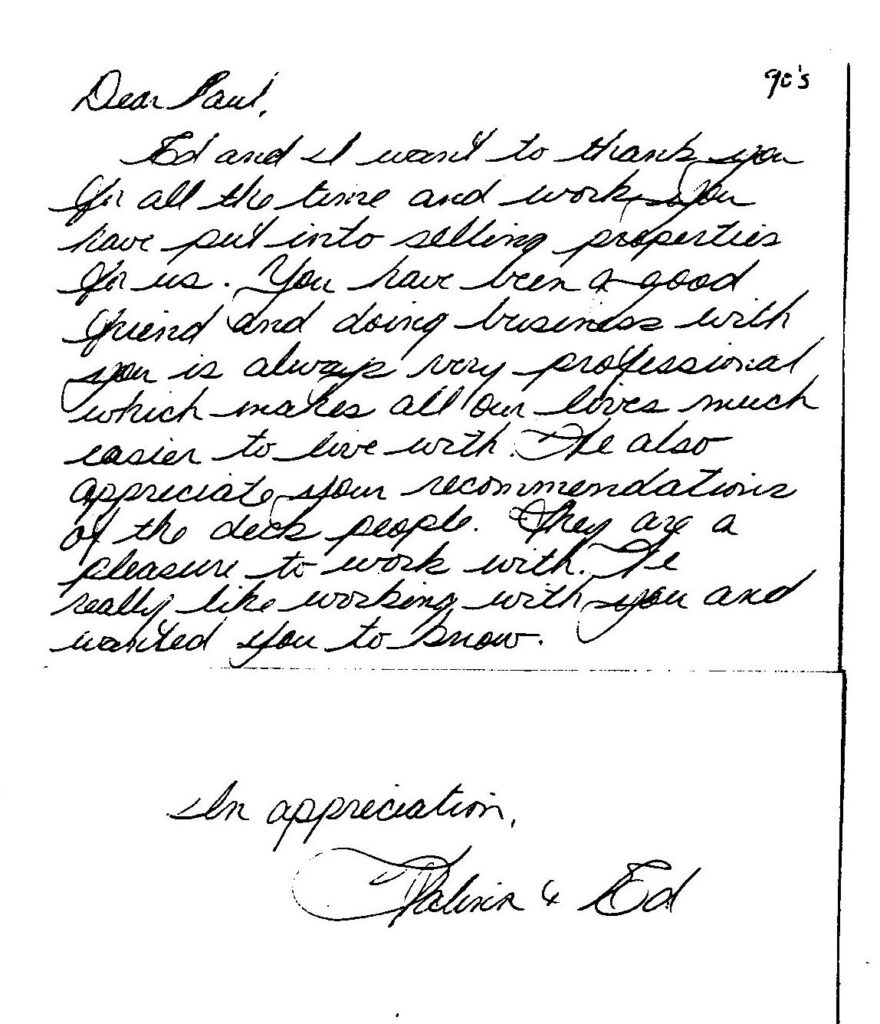 90's
Dear Paul,
Ed and I want to thank you
for all the time and work you
have put into selling properties
for us. You have been a good
friend and doing business with
you is always very professional
which makes all our lives much
easier to live with. We also
appreciate your recommendations
of the deck people. They are a
pleasure to work with. We
really like working with you and
wanted you to know.
In appreciation,
& Ed